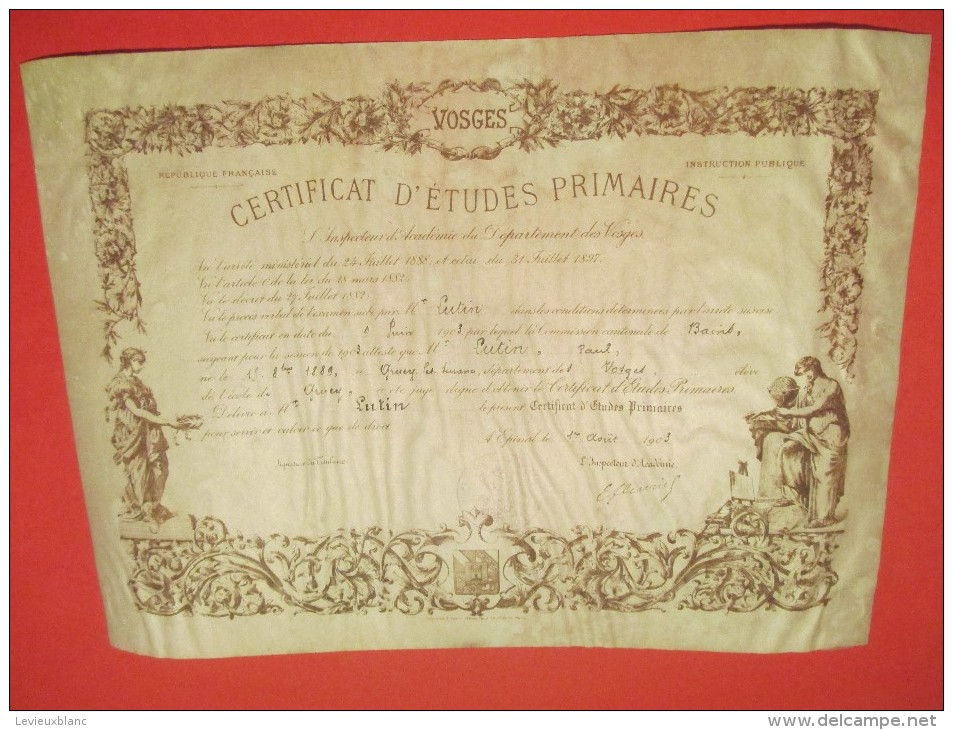 VOSGES
RÉPUBLIQUE FRANÇAISE
INSTRUCTION PUBLIQUE
CERTIFICAT D'ÉTUDES PRIMAIRES
L'Inspecteur d'Académie du Département des Vosges
Vu l'arrêté ministériel du 24 Juillet 1888, et celui du 31 Juillet 1897.
Vu l'article 6 de la loi du 28 mars 1882.
Vu le décret du 27 Juillet 1882,
Vu le procès verbal de l'examen subi par Mr Lutin, dans les conditions déterminées par l'arrêté susvisé
Vu le certificat en date du 8 Juin 1903 par lequel la Commission cantonale de Bains,
siégeant pour la session de 1903 atteste que Mr Lutin, Paul,
né le 8bre 1889, à Gruey les, département des Vosges, élève
de l'école de Gruey, a été jugé digne d'obtenir le Certificat d'Études Primaires
Délivre à Mr Lutin le présent Certificat d'Études Primaires
pour servir et valoir ce que de droit
A Épinal le 1er Août 1903
Signature du Titulaire
L'Inspecteur d'Académie,
Levieuxblanc
www.delcampe.net